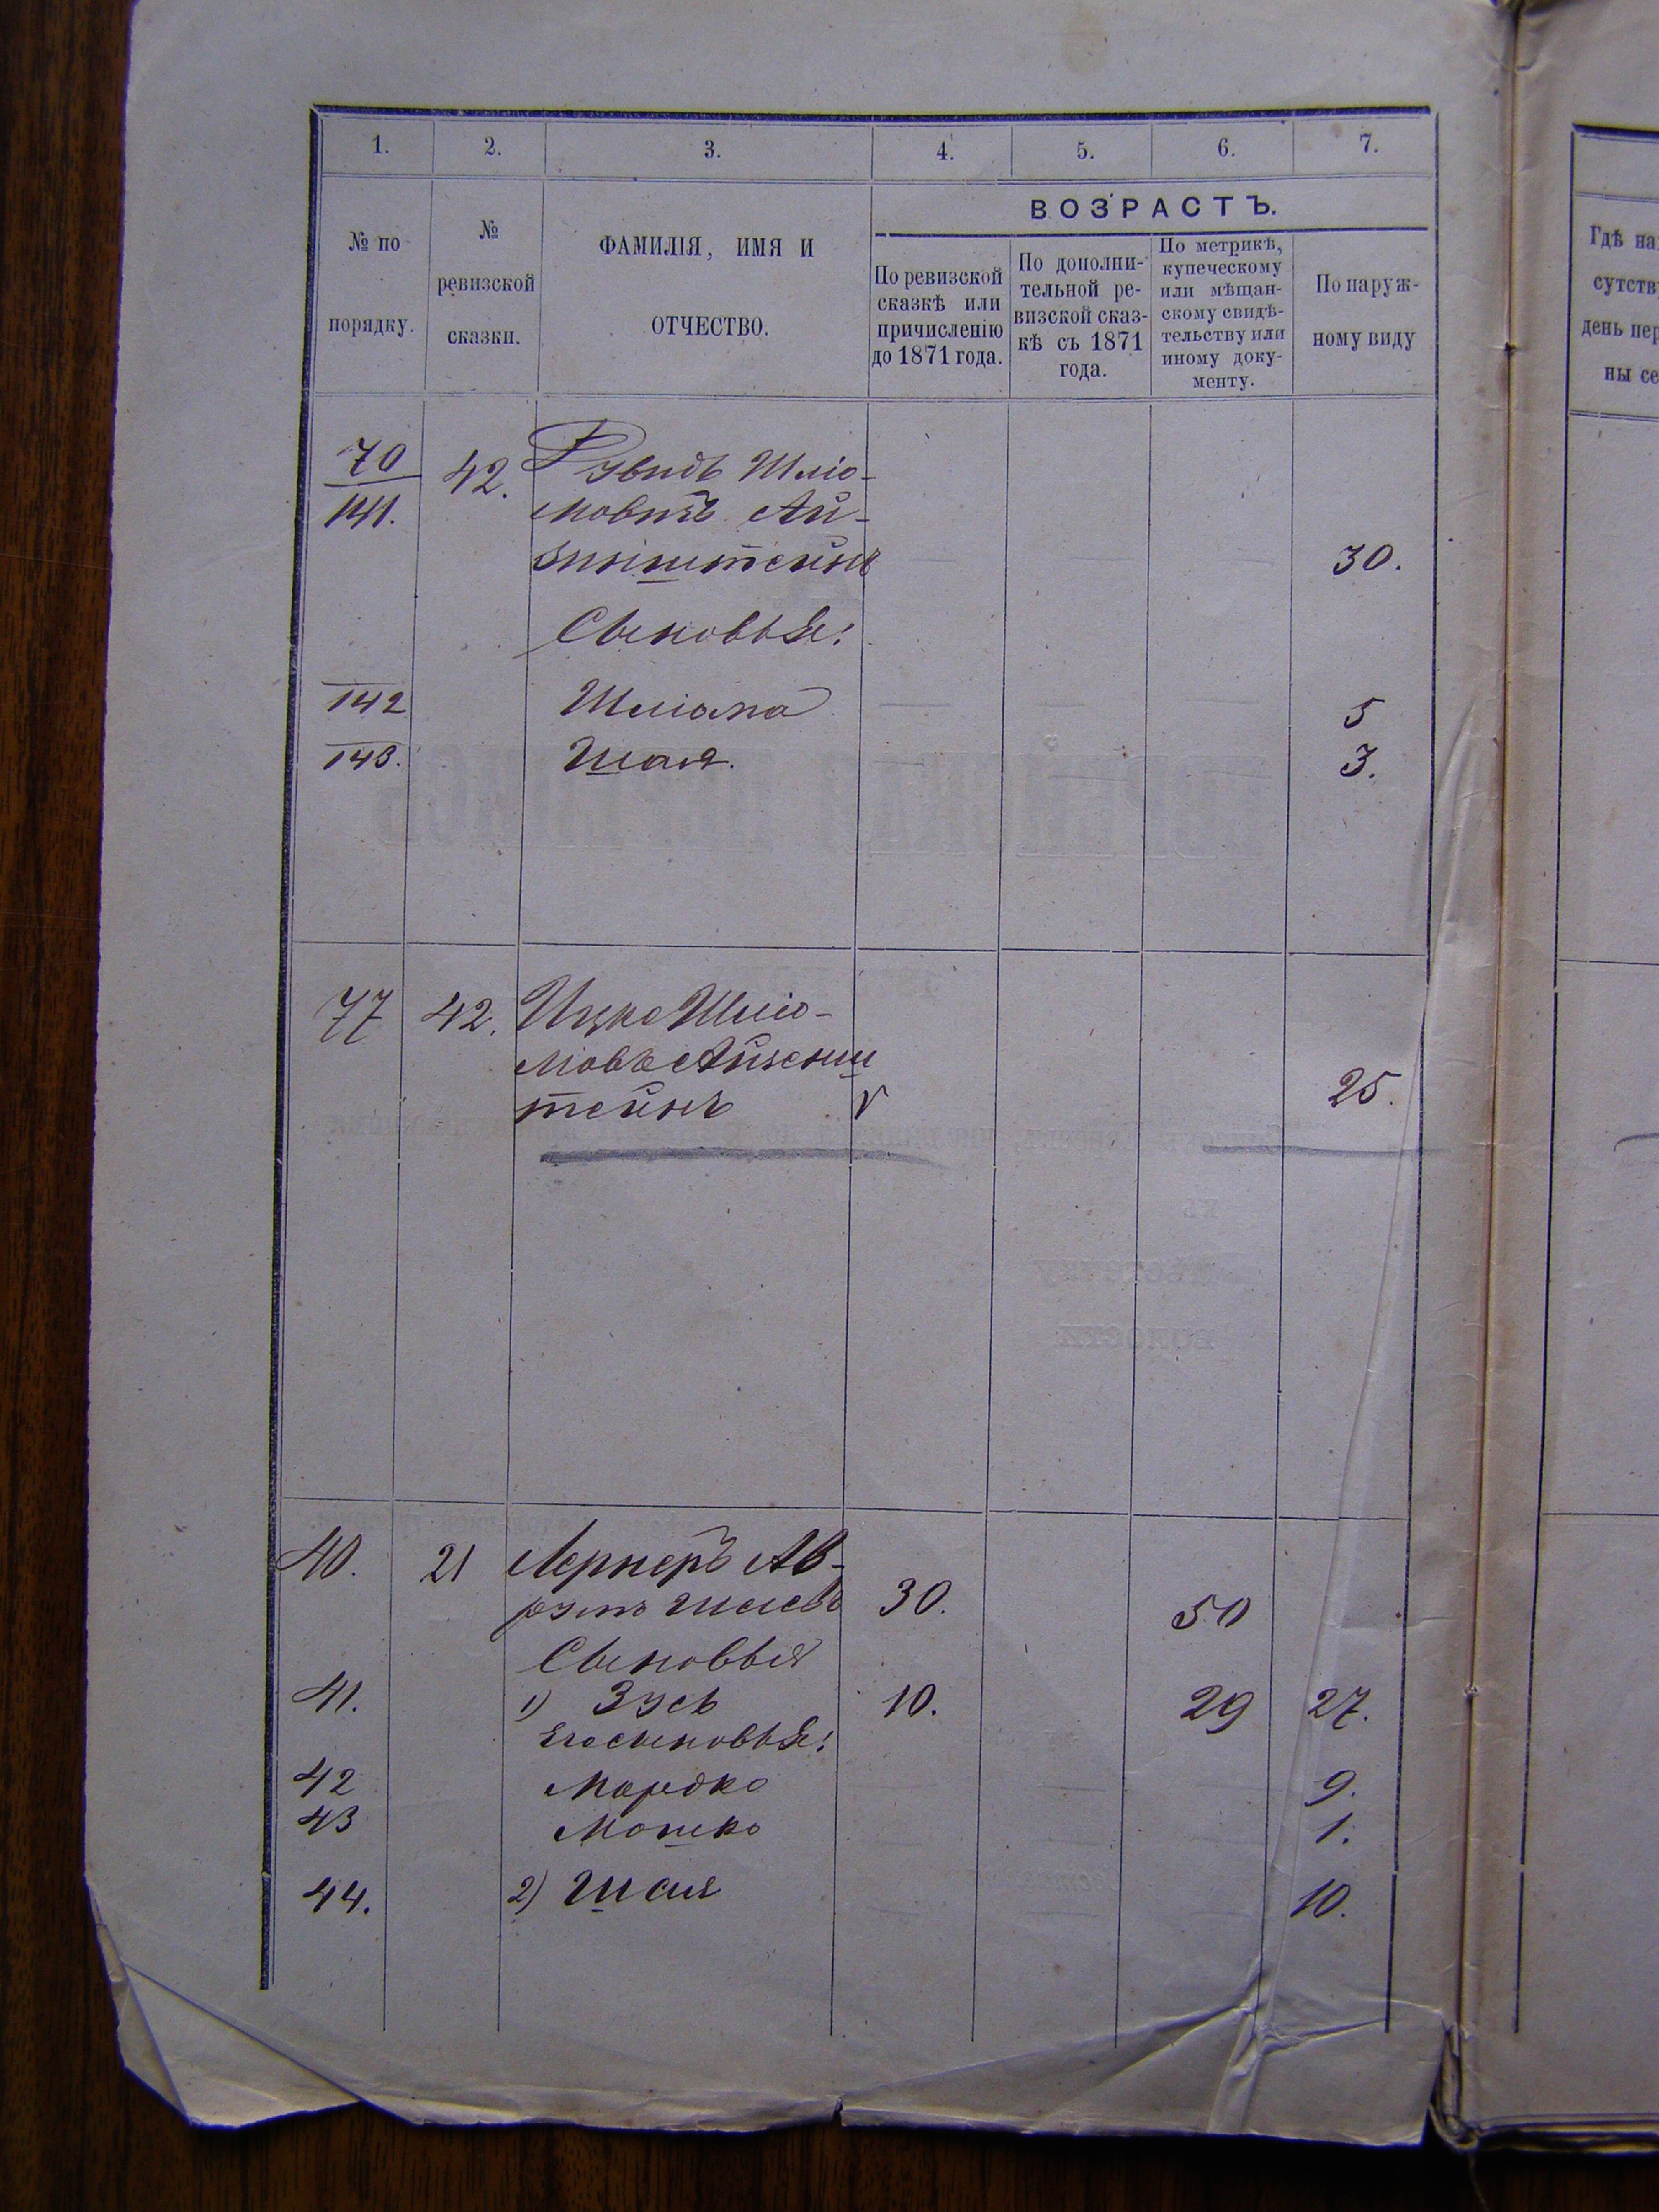 1. 2. 3. 4. 5. 6. 7.
№ по порядку.
№ ревизской сказки.
ФАМИЛІЯ, ИМЯ И
ОТЧЕСТВО.
ВОЗРАСТЪ.
По ревизской
сказкѣ или
причисленію
до 1871 года.
По дополни-
тельной ре-
визской сказ-
кѣ съ 1871
года.
По метрикѣ,
купеческому
или мѣщан-
скому свидѣ-
тельству или
иному доку-
менту.
По наруж-
ному виду
Гдѣ на
сутств
день пер
ны се
70 42. Шлio-
141. Ай-
30.
Сыновья:
142 Шліома 5
143. Шая. 3.
77 42. Ицко Шліо-
мовъ Айзенш
тейнъ V 25.
40. 21 Лернеръ Ав-
румъ 30. 50
Сыновья
41. 1) Зусь 10. 29 27.
Его сыновья:
42 Мордко 9.
43 Мошко 1.
44. 2) Шая 10.